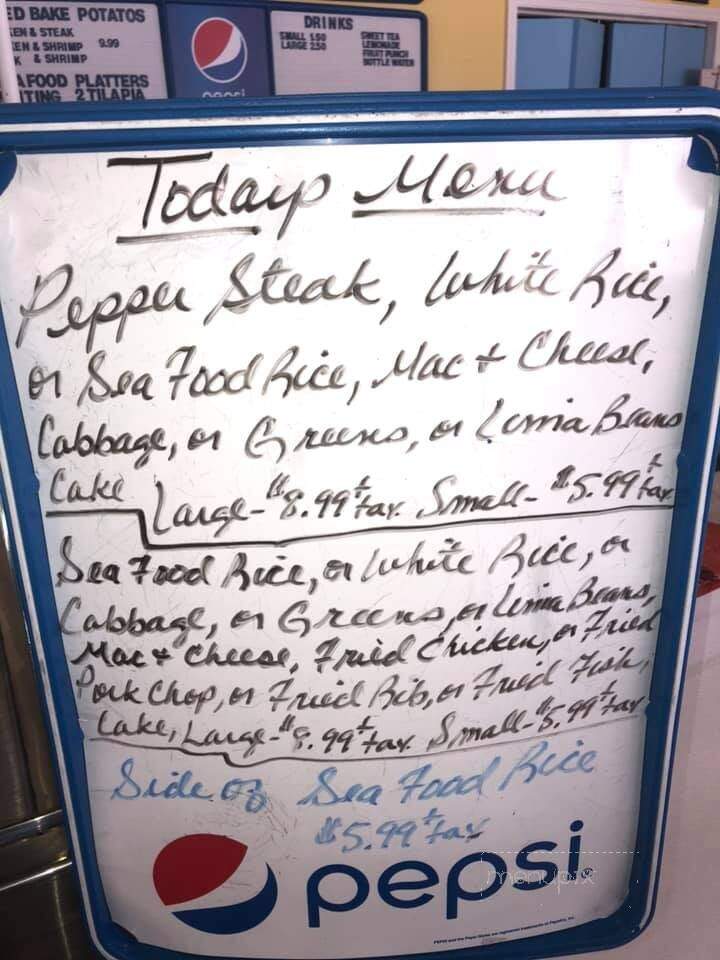 ED BAKE POTATOS
KEN & STEAK
EN & SHRIMP 9.99
K & SHRIMP
AFOOD PLATTERS
TING 2 TILAPIA
pepsi
DRINKS
SMALL 1.50
LARGE 2.50
SWEET TEA
LEMONADE
FRUIT PUNCH
BOTTLE WATER
Todays Menu
Pepper Steak, White Rice,
or Sea Food Rice, Mac + Cheese,
Cabbage, or Greens, or Lima Beans
Cake Large - $8.99 + tax. Small - $5.99 + tax
Sea Food Rice, or White Rice, or
Cabbage, or Greens, or Lima Beans,
Mac + Cheese, Fried Chicken, or Fried
Pork Chop, or Fried Rib, or Fried Fish,
Cake, Large - $8.99 + tax. Small - $5.99 + tax
Side of Sea Food Rice
$5.99 + tax
pepsi®
menupix